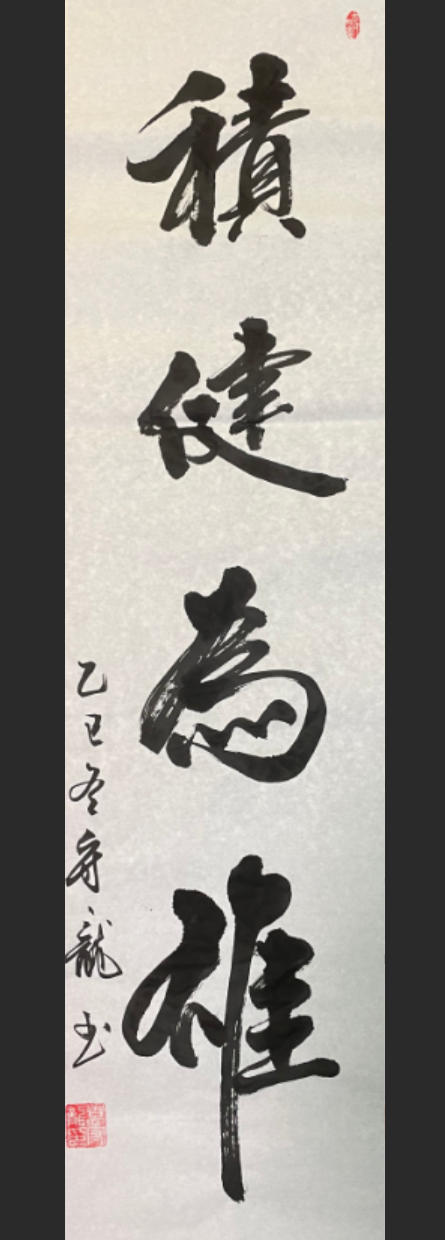 積健為雄
乙巳冬舟龍书